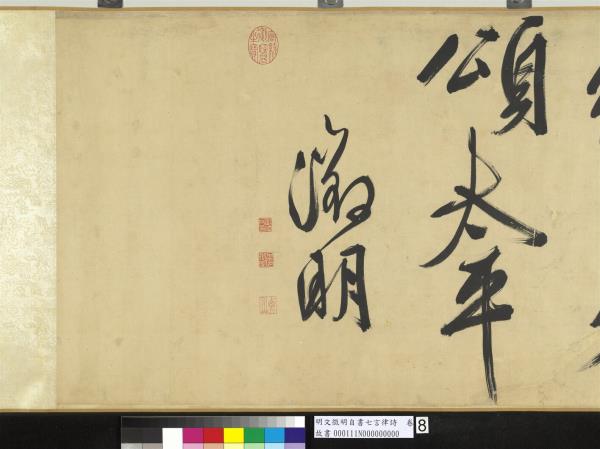 頌太平
徵明
明文徵明自書七言律詩 卷 8
故書 000111N000000000